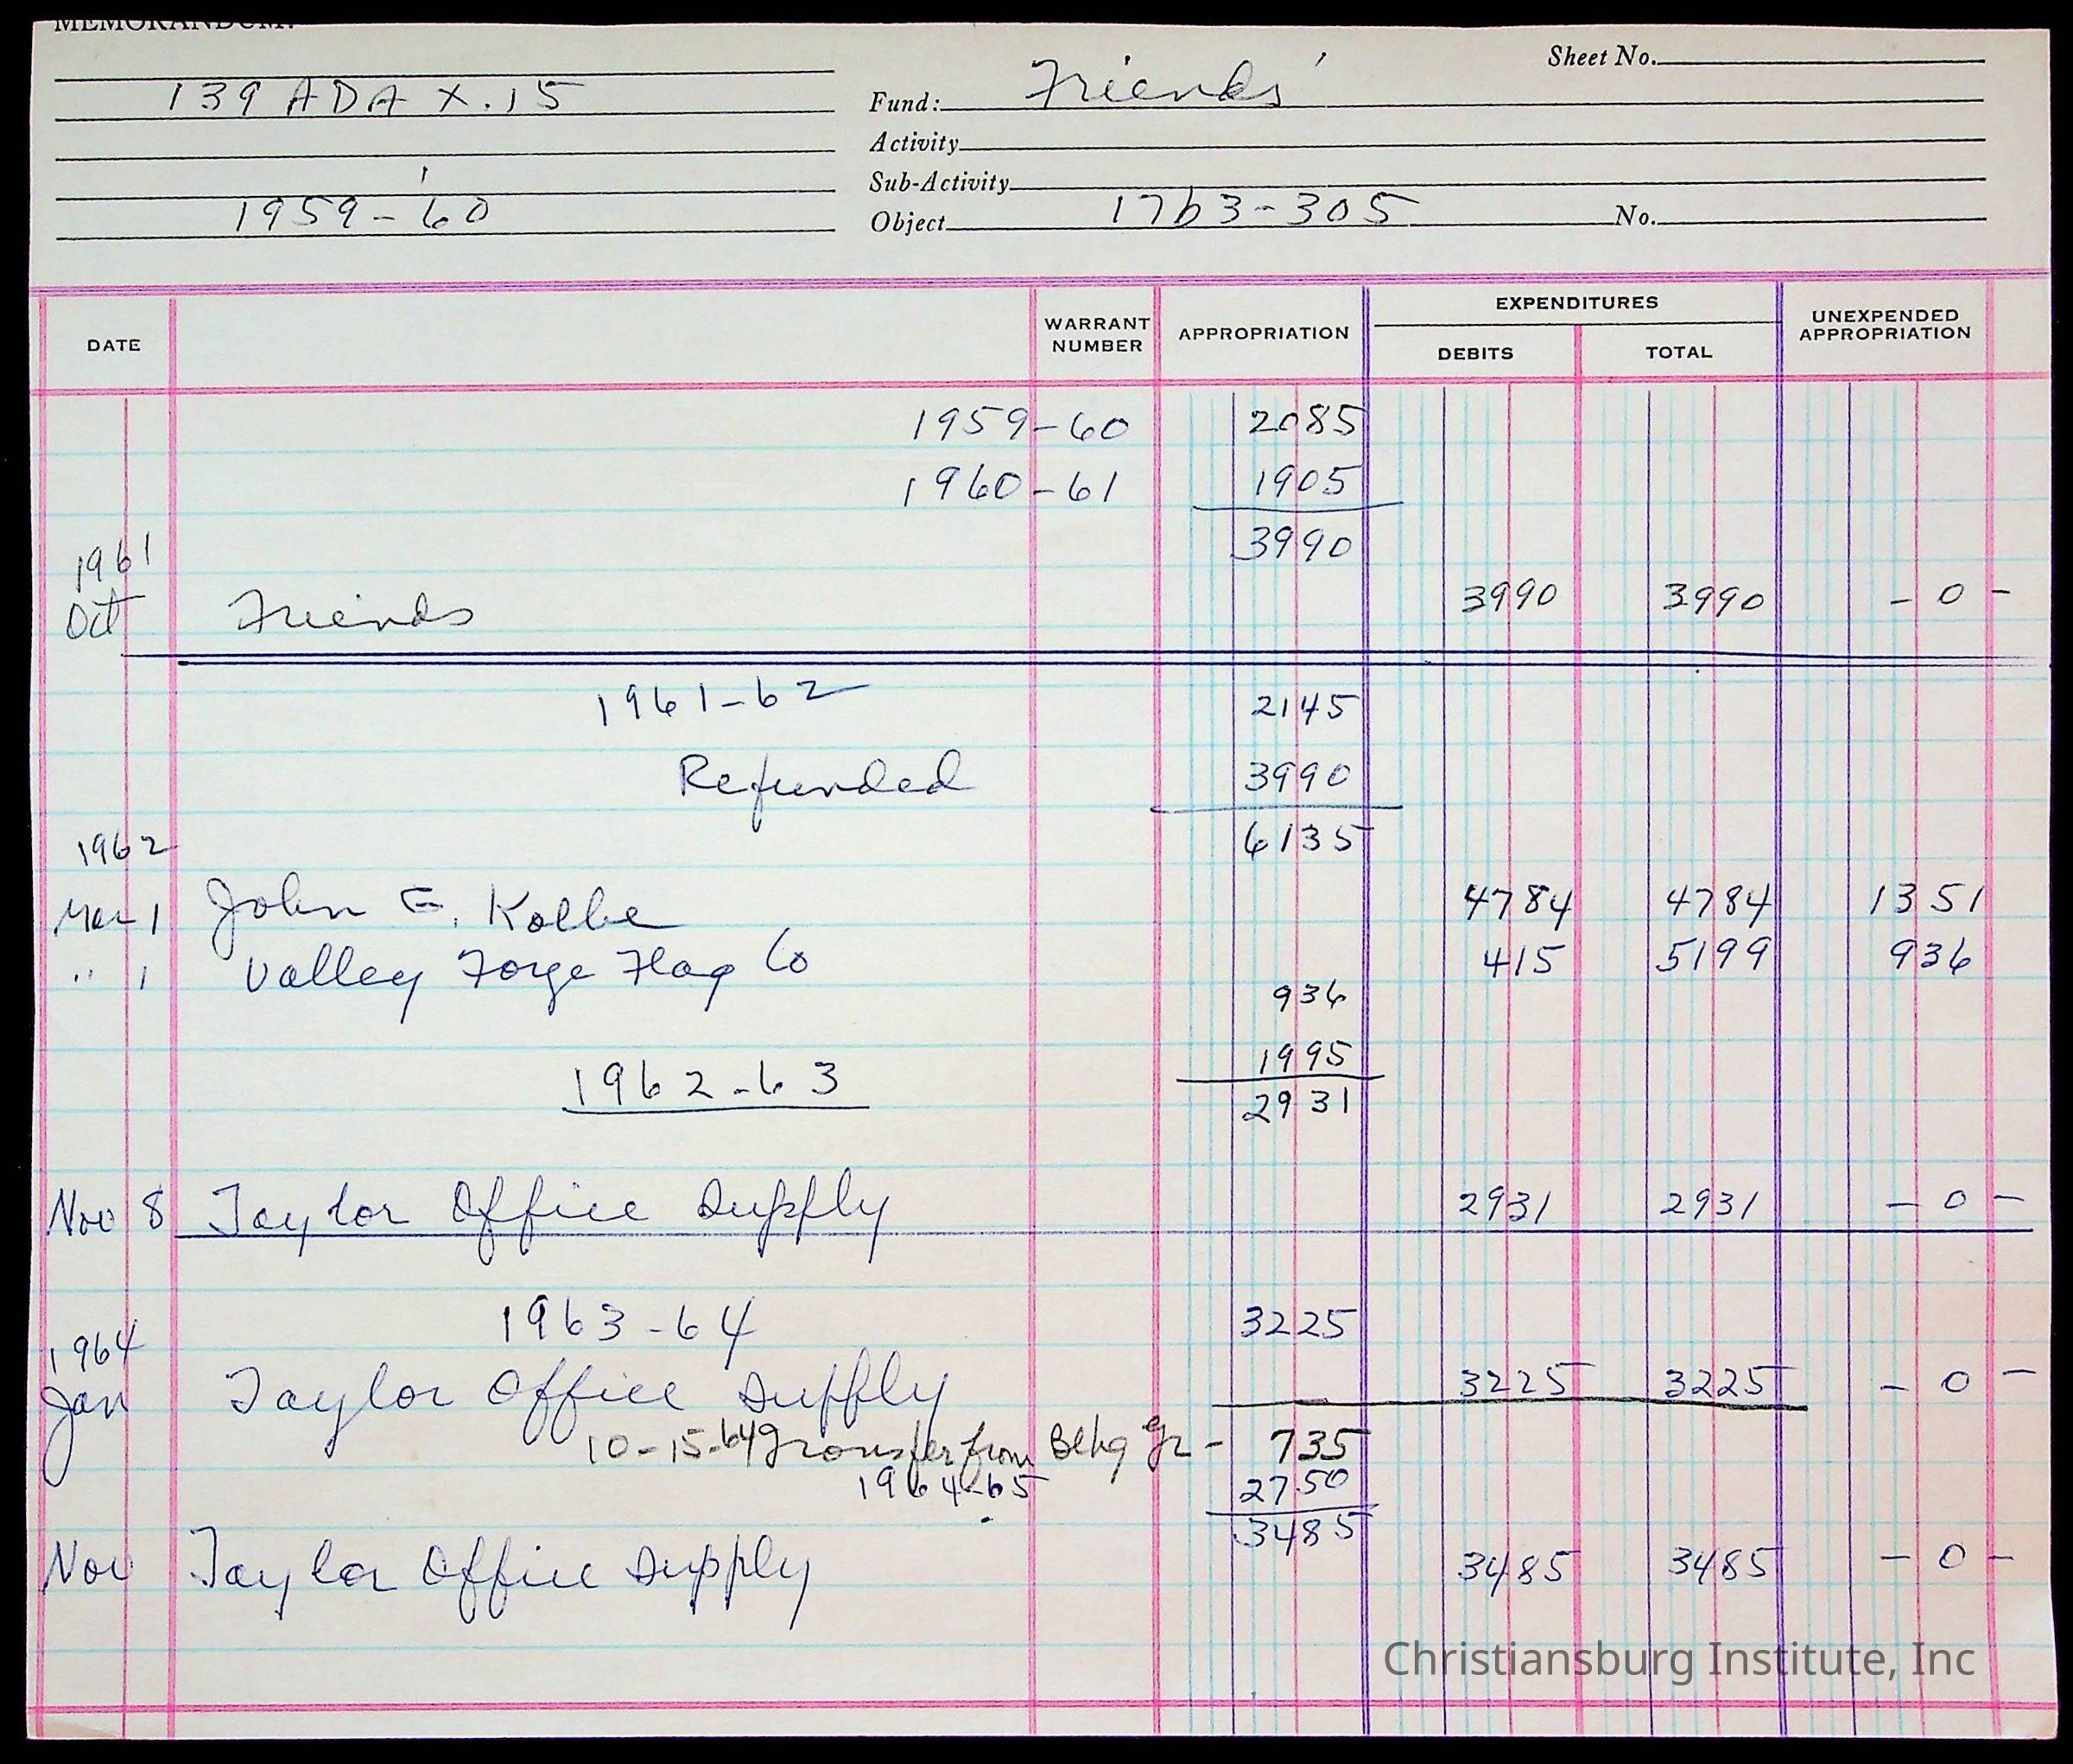 MEMORANDUM:
Sheet No.
139 ADA X.15
Fund: Friends'
Activity
Sub-Activity
1959-60
Object 1763-305 No.
DATE WARRANT NUMBER APPROPRIATION EXPENDITURES DEBITS TOTAL UNEXPENDED APPROPRIATION
1959-60 2085
1960-61 1905
3990
1961
Oct Friends 3990 3990 -0-
1961-62 2145
Refunded 3990
6135
1962
Mar 1 John E. Kolbe 4784 4784 1351
" 1 Valley Forge Flag Co 415 5199 936
936
1962-63 1995
2931
Nov 8 Taylor Office Supply 2931 2931 -0-
1963-64 3225
1964
Jan Taylor Office Supply 3225 3225 -0-
10-15-64 Transfer from 735
1964-65 2750
3485
Nov Taylor Office Supply 3485 3485 -0-
Christiansburg Institute, Inc